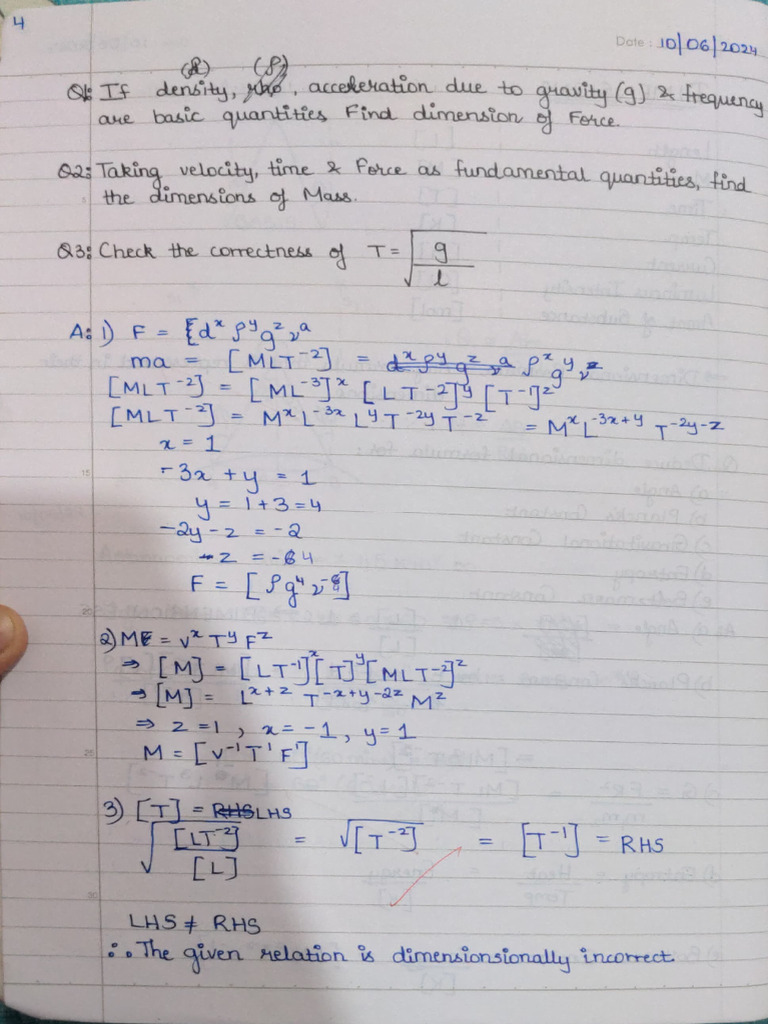 4
Date: 10/06/2024
(ρ) (ρ)
Q1: If density, rho, acceleration due to gravity (g) & frequency
are basic quantities Find dimension of Force.
Q2: Taking velocity, time & Force as fundamental quantities, find
the dimensions of Mass.
Q3: Check the correctness of T = √(g/l)
A: 1) F = [d^x ρ^y g^z ν^a
ma = [MLT⁻²] = d^x ρ^y g^z ν^a ρ^x g^y ν^z
[MLT⁻²] = [ML⁻³]^x [LT⁻²]^y [T⁻¹]^z
[MLT⁻²] = M^x L^-3x L^y T^-2y T^-z = M^x L^-3x+y T^-2y-z
x = 1
-3x + y = 1
y = 1+3 = 4
-2y - z = -2
-z = -64
F = [ρg⁴ν⁻⁶]
2) M = v^x T^y F^z
⇒ [M] = [LT⁻¹]^x [T]^y [MLT⁻²]^z
⇒ [M] = L^x+z T^-x+y-2z M^z
⇒ z = 1, x = -1, y = 1
M = [v⁻¹T¹F¹]
3) [T] = RHS LHS
√([LT⁻²]/[L]) = √[T⁻²] = [T⁻¹] = RHS
LHS ≠ RHS
∴ The given relation is dimensionsionally incorrect.